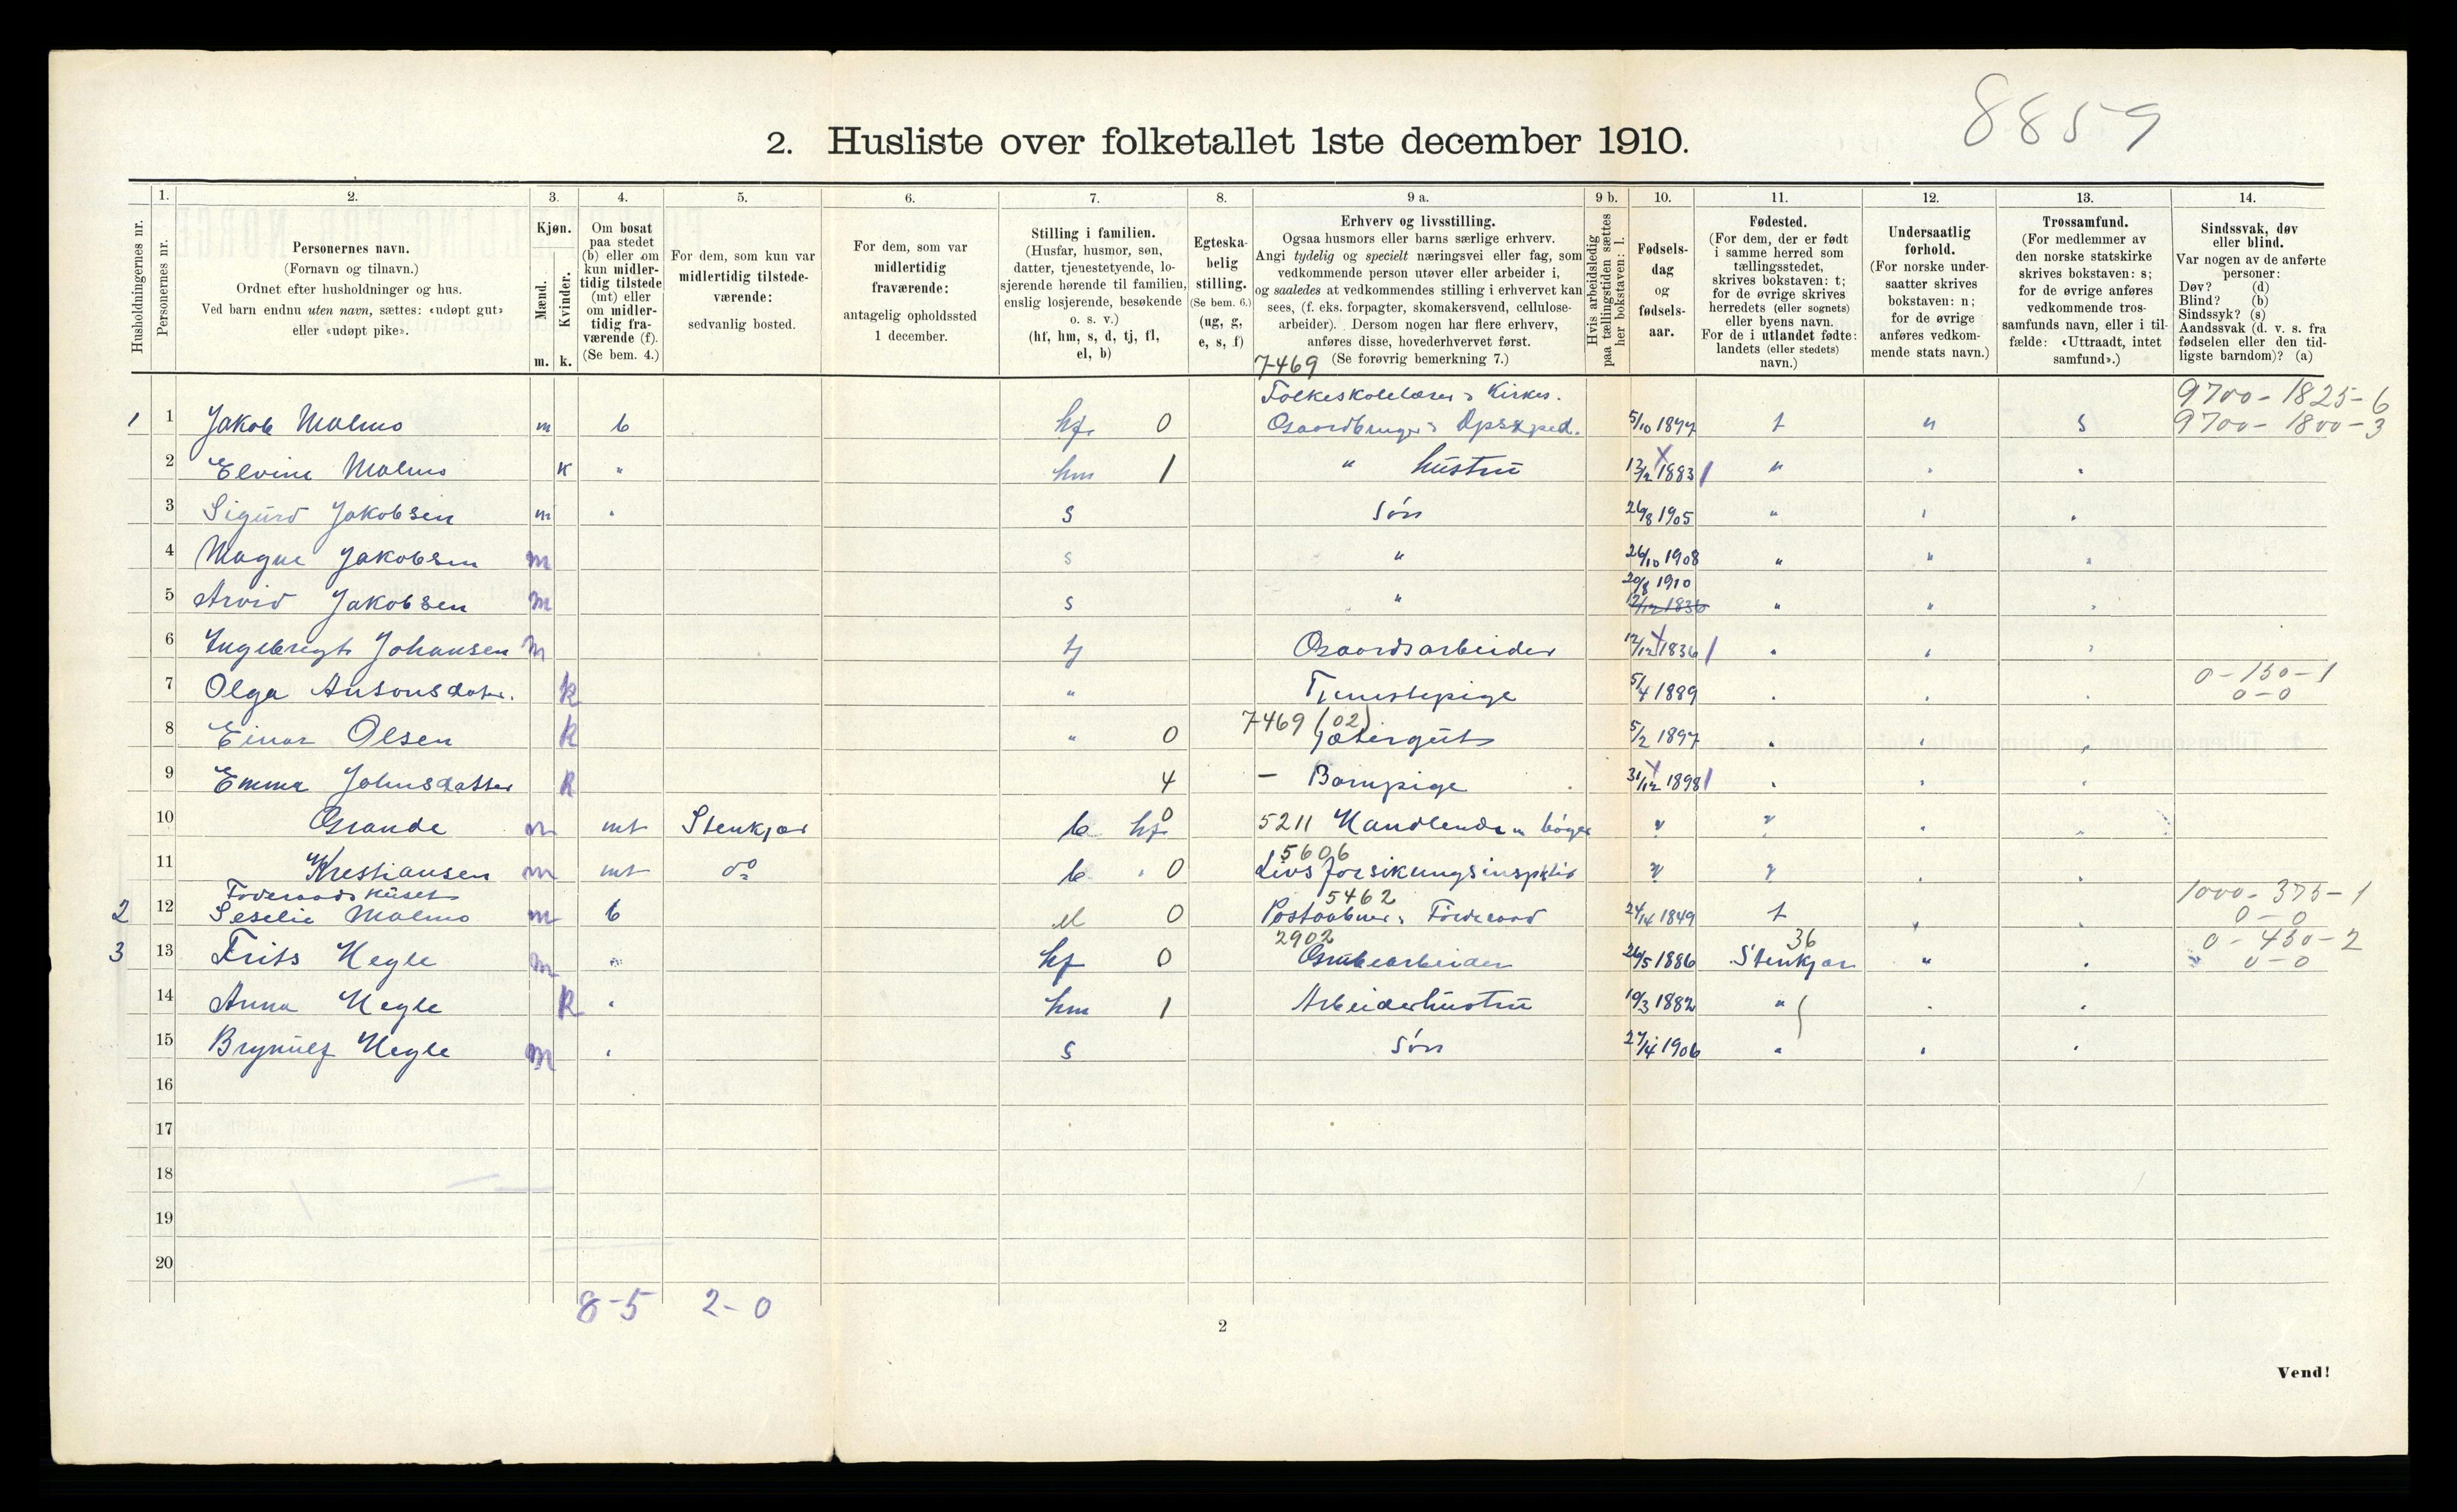 8859
2. Husliste over folketallet 1ste december 1910.
Husholdningernes nr.
1. Personernes nr.
2. Personernes navn.
(Fornavn og tilnavn.)
Ordnet efter husholdninger og hus.
Ved barn endnu uten navn, sættes: «udøpt gut»
eller «udøpt pike».
3. Kjøn.
Mænd. Kvinder.
m. k.
4. Om bosat
paa stedet
(b) eller om
kun midler-
tidig tilstede
(mt) eller
om midler-
tidig fra-
værende (f).
(Se bem. 4.)
5. For dem, som kun var
midlertidig tilstede-
værende:
sedvanlig bosted.
6. For dem, som var
midlertidig
fraværende:
antagelig opholdssted
1 december.
7. Stilling i familien.
(Husfar, husmor, søn,
datter, tjenestetyende, lo-
sjerende hørende til familien,
enslig losjerende, besøkende
o. s. v.)
(hf, hm, s, d, tj, fl,
el, b)
8. Egteska-
belig
stilling.
(Se bem. 6.)
(ug, g,
e, s, f)
9 a. Erhverv og livsstilling.
Ogsaa husmors eller barns særlige erhverv.
Angi tydelig og specielt næringsvei eller fag, som
vedkommende person utøver eller arbeider i,
og saaledes at vedkommendes stilling i erhvervet kan
sees, (f. eks. forpagter, skomakersvend, cellulose-
arbeider). Dersom nogen har flere erhverv,
anføres disse, hovederhvervet først.
(Se forøvrig bemerkning 7.)
9 b. Hvis arbeidsledig
paa tællingstiden sættes
her bokstaven: l.
10. Fødsels-
dag
og
fødsels-
aar.
11. Fødested.
(For dem, der er født
i samme herred som
tællingsstedet,
skrives bokstaven: t;
for de øvrige skrives
herredets (eller sognets)
eller byens navn.
For de i utlandet fødte:
landets (eller stedets)
navn.)
12. Undersaatlig
forhold.
(For norske under-
saatter skrives
bokstaven: n;
for de øvrige
anføres vedkom-
mende stats navn.)
13. Trossamfund.
(For medlemmer av
den norske statskirke
skrives bokstaven: s;
for de øvrige anføres
vedkommende tros-
samfunds navn, eller i til-
fælde: «Uttraadt, intet
samfund».)
14. Sindssvak, døv
eller blind.
Var nogen av de anførte
personer:
Døv? (d)
Blind? (b)
Sindssyk? (s)
Aandssvak (d. v. s. fra
fødselen eller den tid-
ligste barndom)? (a)
7469
Folkeskolelærer, Kirkes. 9700-1825-6
1 1 Jakob Malmo m b hf. 0 Gaardbruger, 5/10 1877 t n s 9700-1800-3
2 Elvine Malmo k " hm 1 " hustru 13/2 1883 "
3 Sigurd Jakobsen m " s Søn 26/8 1905 "
4 Magne Jakobsen m s " 26/10 1908 " "
20/8 1910
5 Arvid Jakobsen m s " 12/12 1836 " "
6 Ingebrigt Johansen m tj Gaardsarbeider 12/12 1836
0-150-1
7 Olga Antonsdater. k " Tjenestepige 5/4 1889 0-0
7469 (02)
8 Einar Olsen k " 0 Jætergut 5/2 1897
9 Emma Johnsdatter k 4 - Barnpige 31/12 1898
10 Grande m mt Stenkjær b hf 0 5211 Handlende m bøger ? ?
5606
11 Krestiansen m mt do b " 0 Livsforsikringsinspektør ? ?
Foderaadshuset 5462 1000-375-1
2 12 Seselie Malmo m b el 0 Postaabner, Føderaad 24/4 1849 t 0-0
2902 36 0-450-2
3 13 Frits Hegle m " hf 0 Grubearbeider 26/5 1886 Stenkjær " 0-0
14 Anna Hegle k " hm 1 Arbeiderhustru 19/3 1882 "
15 Brynulf Hegle m " s Søn 27/4 1906 "
16
17
18
19
20
8-5 2-0
2
Vend!